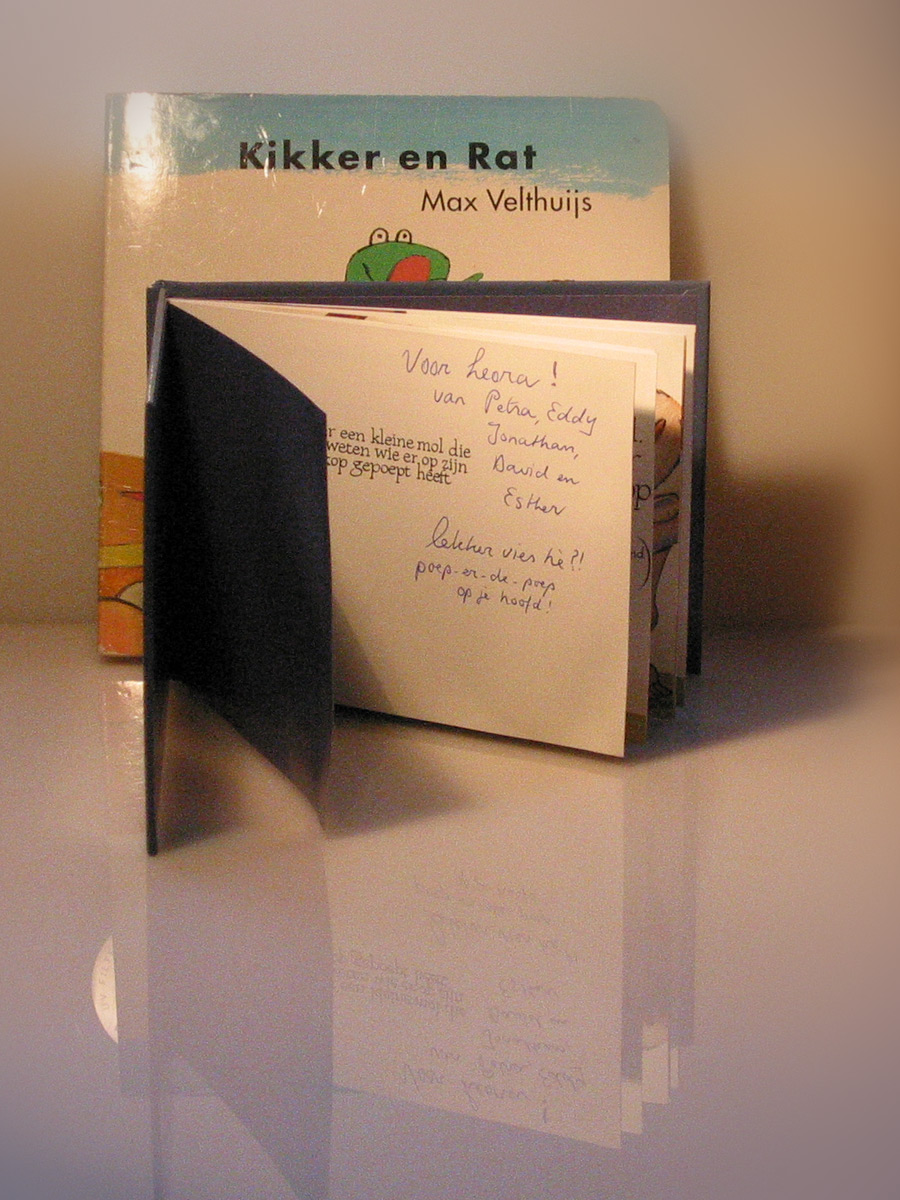 Kikker en Rat
Max Velthuijs
Voor leora!
van Petra, Eddy
Jonathan,
David en
Esther
r een kleine mol die
weten wie er op zijn
kop gepoept heeft
lekker vies hè?!
poep-er-de-poep
op je hoofd!
op
nd)